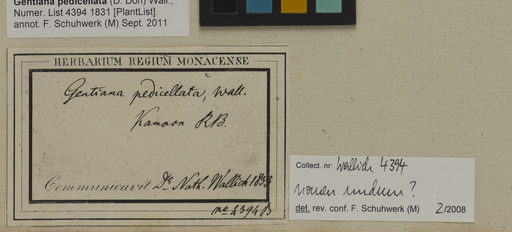 Gentiana pedicellata (D. Don) Wall.,
Numer. List 4394 1831 [PlantList]
annot. F. Schuhwerk (M) Sept. 2011
HERBARIUM REGIUM MONACENSE
Gentiana pedicellata, Wall.
Kamoon R.B.
Communicavit Dr. Nath. Wallich 1833
no 4394 B
Collect. nr: Wallich 4394
nomen nudum?
det. rev. conf. F. Schuhwerk (M) 2/2008